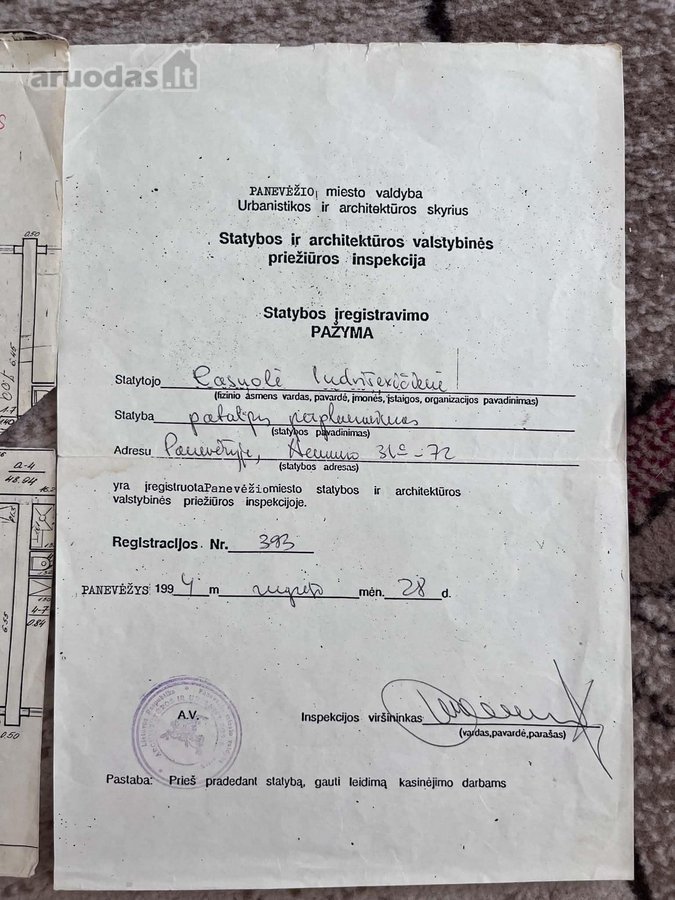 aruodas.lt
PANEVĖŽIO miesto valdyba
Urbanistikos ir architektūros skyrius
Statybos ir architektūros valstybinės
priežiūros inspekcija
Statybos įregistravimo
PAŽYMA
Statytojo
(fizinio asmens vardas, pavardė, įmonės, įstaigos, organizacijos pavadinimas)
Statyba patalpų
(statybos pavadinimas)
Adresu Panevėžyje, 31 - 72
(statybos adresas)
yra įregistruota Panevėžio miesto statybos ir architektūros
valstybinės priežiūros inspekcijoje.
Registracijos Nr. 393
PANEVĖŽYS 1994 m rugsėjo mėn. 28 d.
A.V.
Inspekcijos viršininkas
(vardas, pavardė, parašas)
Pastaba: Prieš pradedant statybą, gauti leidimą kasinėjimo darbams
0.50
6.46
a-4
48.04
4-7
0.84
6.55
0.50